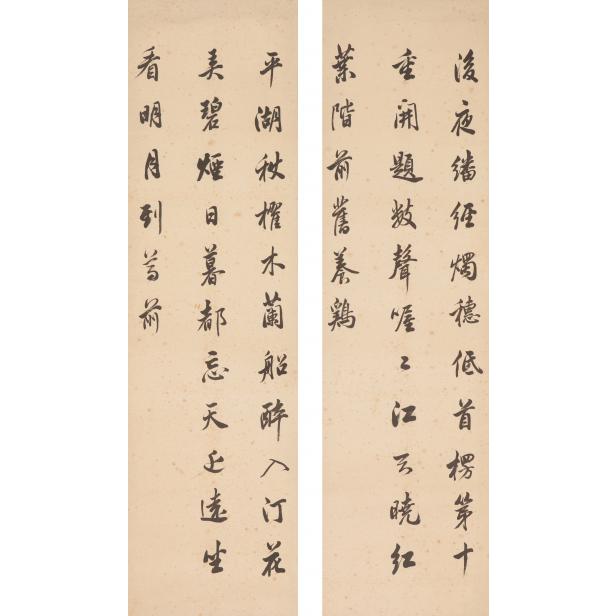 後夜繙經燭穗低首楞第十
重開題數聲喔〻江云曉紅
葉階前舊養鷄
平湖秋櫂木蘭船醉入汀花
美碧煙日暮都忘天近遠坐
看明月到尊前